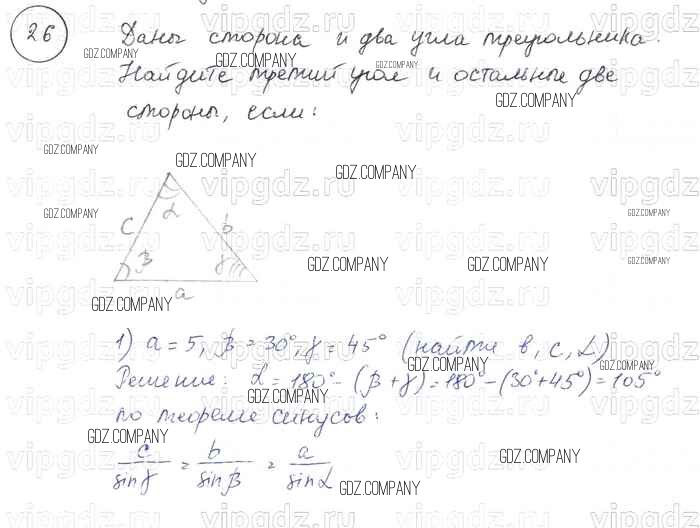 26
Даны сторона и два угла треугольника.
Найдите третий угол и остальные две
стороны, если:
α
c b
β γ
a
1) a = 5, β = 30°, γ = 45° (найти в, c, α)
Решение: α = 180° - (β + γ) = 180° - (30° + 45°) = 105°
по теореме синусов:
c/sinγ = b/sinβ = a/sinα
GDZ.COMPANY
vipgdz.ru